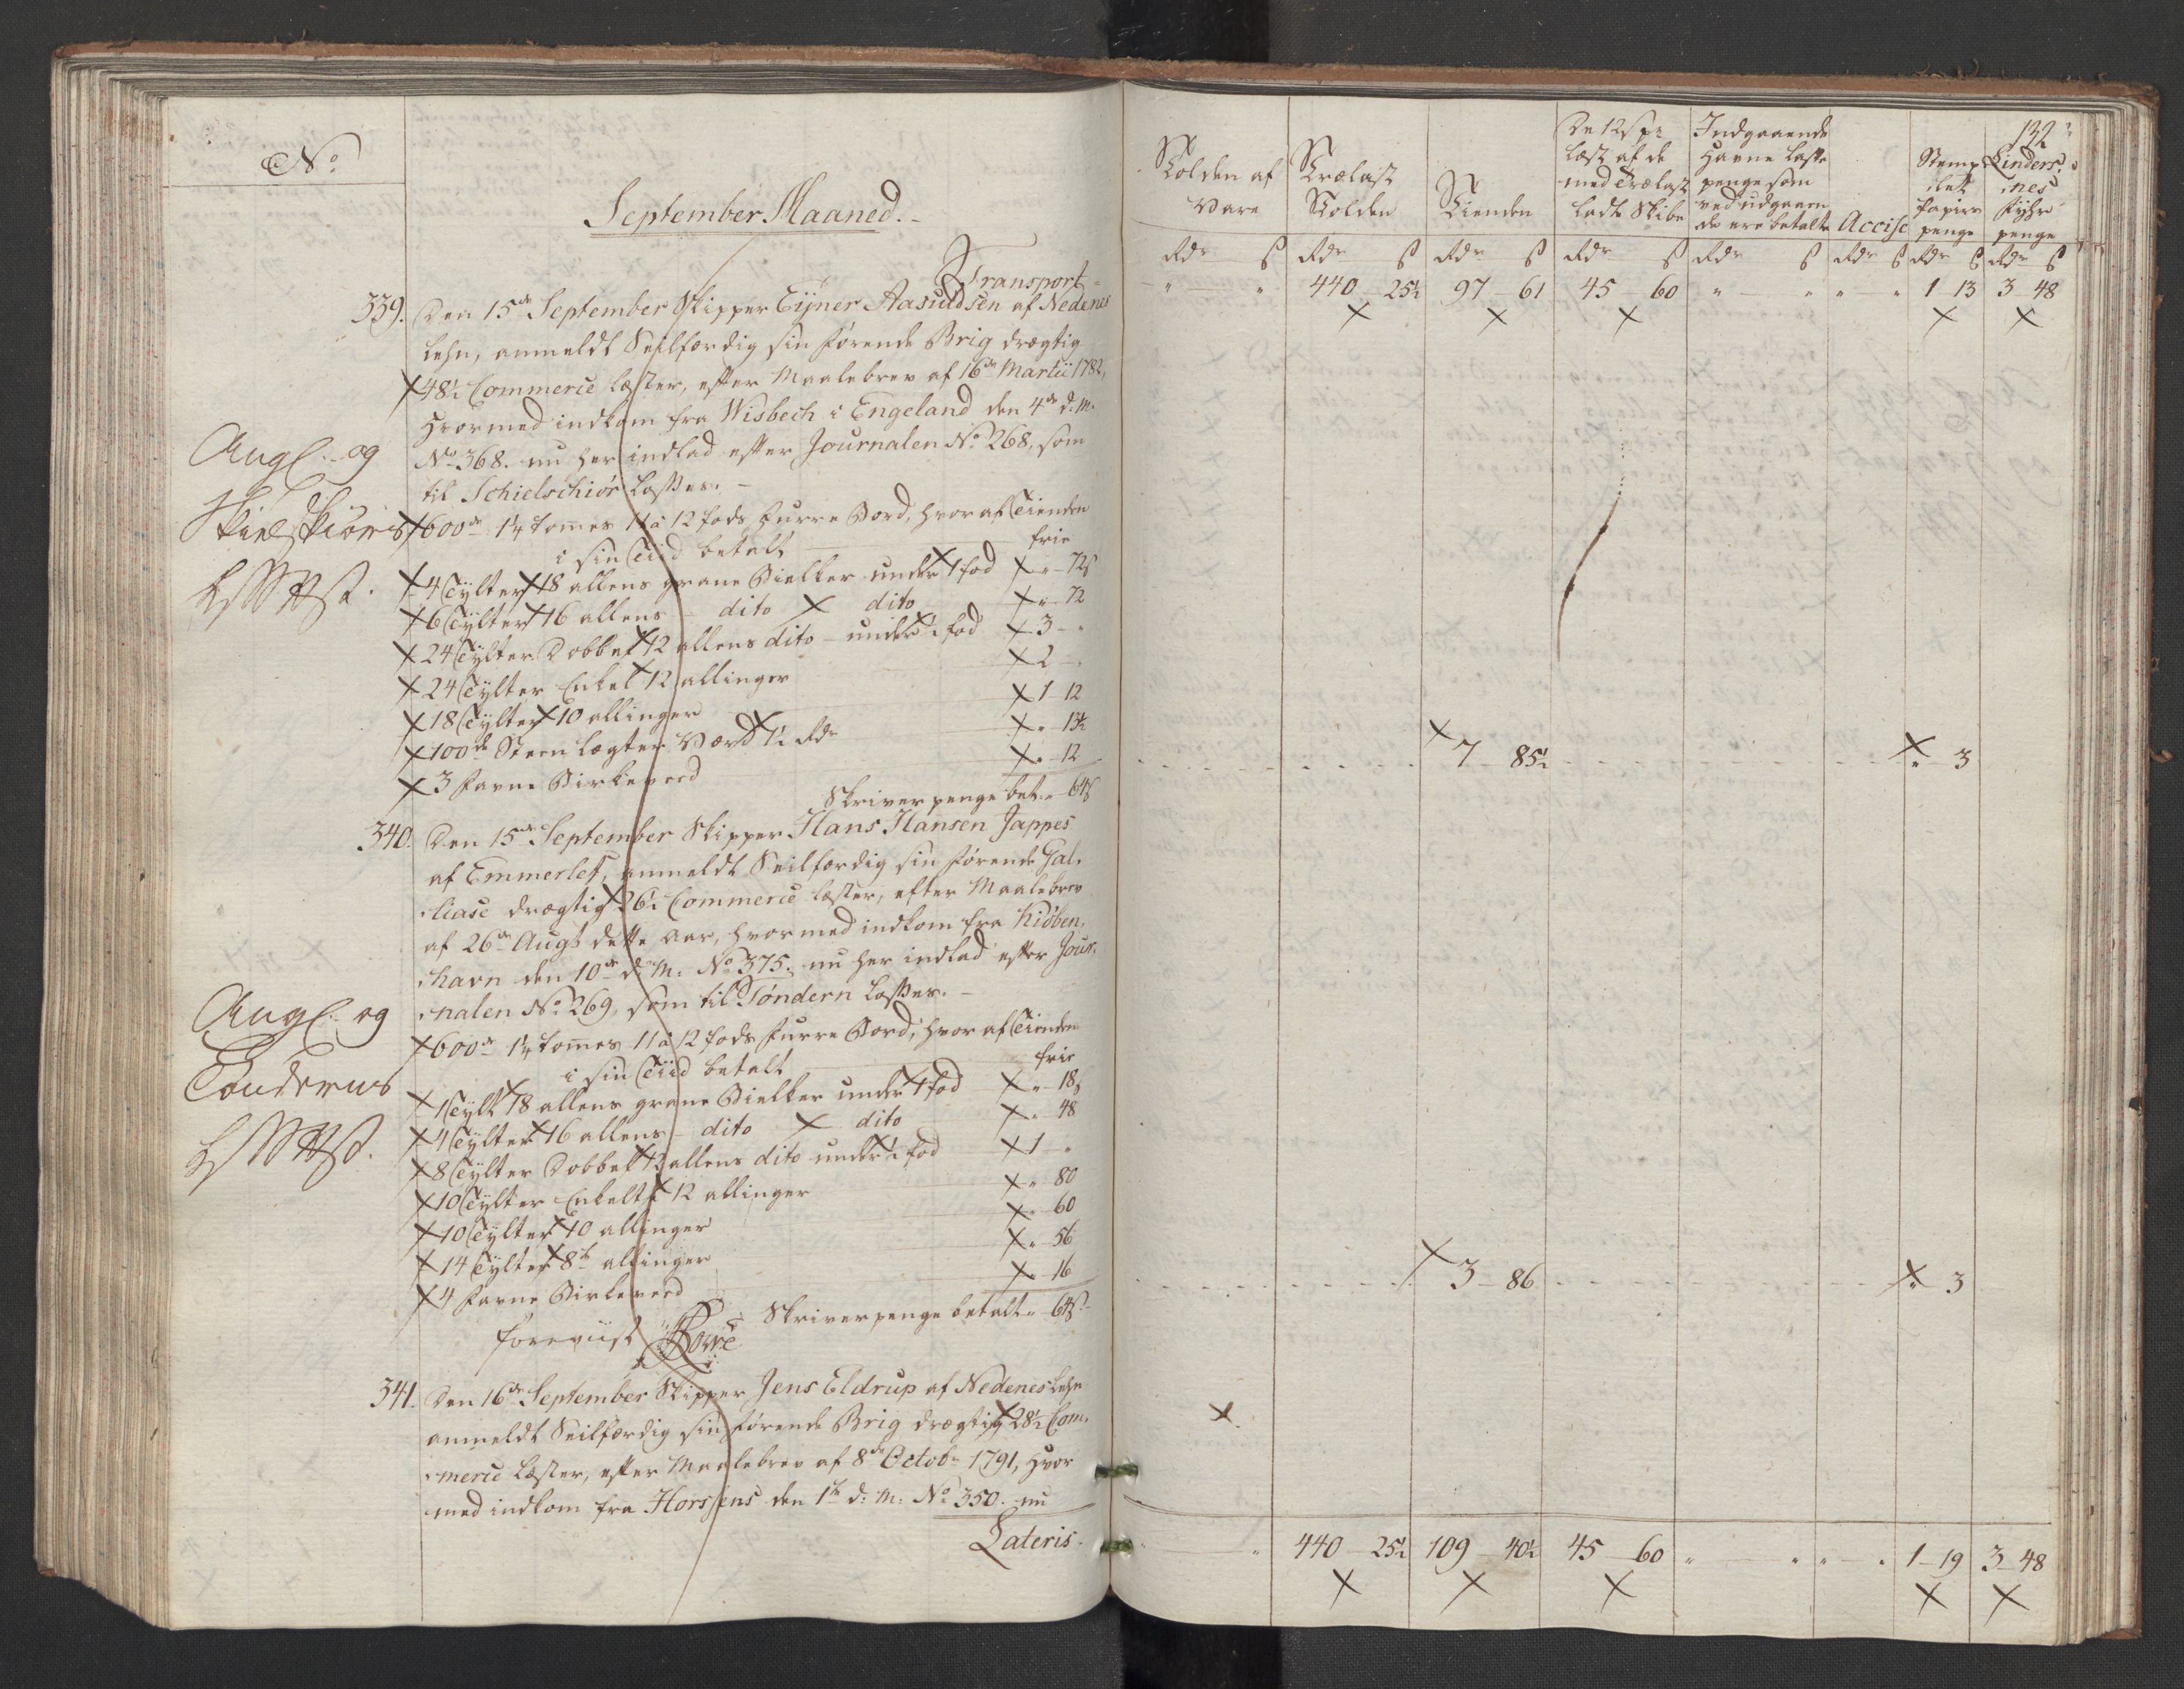 No
September Maaned.
Transport
339. Den 15de September Skipper Eijner Aasuldsen af Nedenes
Lehn, anmeldt Seilfærdig sin førende Brig drægtig
48½ Commerce Læster, efter Maalebrev af 16de Martii 1782,
hvormed indkom fra Wisbech i Engeland den 4de d: M:
No 368. nu her indlad efter Journalen No 268, som
til Schielschiør Losses.
Angl: og
Skielskiørs
600de 1¼ tommes 11 a 12 fods furre Bord, hvoraf Tienden
i sin Tiid betalt frie
4 Tylter 18 allens grane Bielker under 1 fod " 72 s
6 Tylter 16 allens dito dito " 72
24 Tylter Dobbelt 12 allens dito under ½ fod 3 "
24 Tylter Enkel 12 allinger 2 "
18 Tylter 10 allinger 1 12
100de Steen Lægter Værd 1½ Rdr " 13½
3 Favne Birkeveed " 12
Skriverpenge bet: " 64 s
340. Den 15de September Skipper Hans Hansen Jappes
af Emmerlef, anmeldt Seilfærdig sin førende Gal-
liase drægtig 26½ Commerce Læster, efter Maalebrev
af 26de Augt dette Aar, hvormed indkom fra Kiøben-
havn den 10de d: M: No 375. nu her indlad efter Jour-
nalen No 269, som til Tøndern Losses.
Angl: og
Tonderns
600de 1¼ tommes 11 a 12 fods furre Bord, hvoraf Tienden
i sin Tiid betalt frie
1 Tylt 18 allens grane Bielker under 1 fod " 18 s
4 Tylter 16 allens dito dito " 48
8 Tylter Dobbelt 12 allens dito under ½ fod 1 "
10 Tylter Enkelt 12 allinger " 80
10 Tylter 10 allinger " 60
14 Tylter 8te allinger " 56
4 Favne Birkeveed " 16
Skriverpenge betalt " 64 s
foreviist
341. Den 16de September Skipper Jens Eldrup af Nedenes Lehn
anmeldt Seilfærdig sin førende Brig drægtig 28½ Com-
merce Læster, efter Maalebrev af 8de Octobr 1791, hvor
med indkom fra Horsens den 1te d: M: No 350. nu
Lateris.
132
Tolden af Vare
Trælast Tolden
Tienden
De 12 s pr Læst af de med Trælast ladte Skibe
Indgaaende Havne Laste penge som ved udgaaende ere betalte
Accise
Stemplett Papiirs penge
Linders-nes Fyhr penge
Rdr s Rdr s Rdr s Rdr s Rdr s Rdr s Rdr s Rdr s
" " 440 25½ 97 61 45 60 " " " " 1 13 3 48
7 85½ " 3
3 86 " 3
" " 440 25½ 109 40½ 45 60 " " " " 1 19 3 48